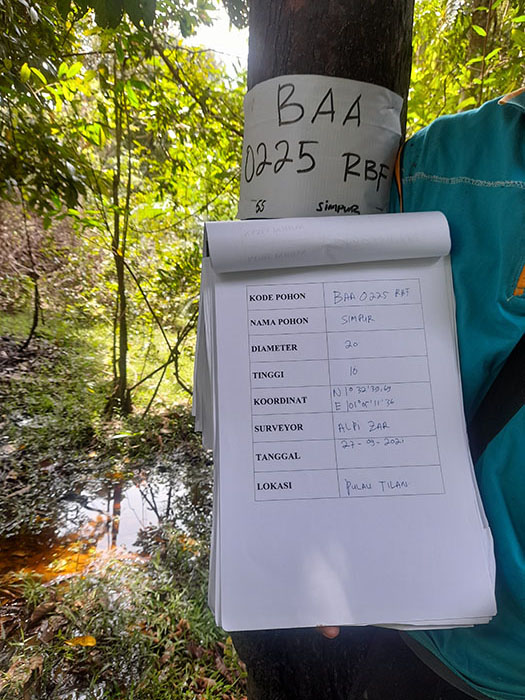 BAA
0225 RBF
55 SIMPUR
KODE POHON BAA 0225 RBF
NAMA POHON SIMPUR
DIAMETER 20
TINGGI 10
KOORDINAT N 1° 32' 30.69
E 101° 05' 11" 36
SURVEYOR ALPI ZAR
TANGGAL 27-09-2021
LOKASI PULAU TILAN